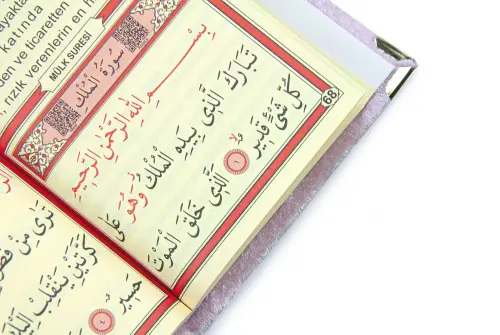 katında
en ve ticaretten
rızık verenlerin en
MÜLK SURESİ
سُورَةُ الْمُلْكِ
68
بِسْمِ اللّٰهِ الرَّحْمٰنِ الرَّحِيمِ
تَبَارَكَ الَّذِي بِيَدِهِ الْمُلْكُ وَهُوَ عَلَى
كُلِّ شَيْءٍ قَدِيرٌ ١ اَلَّذِي خَلَقَ الْمَوْتَ
تَرٰى مِنْ
كَرَّتَيْنِ يَنْقَلِبْ
حَسِيرٌ ٤